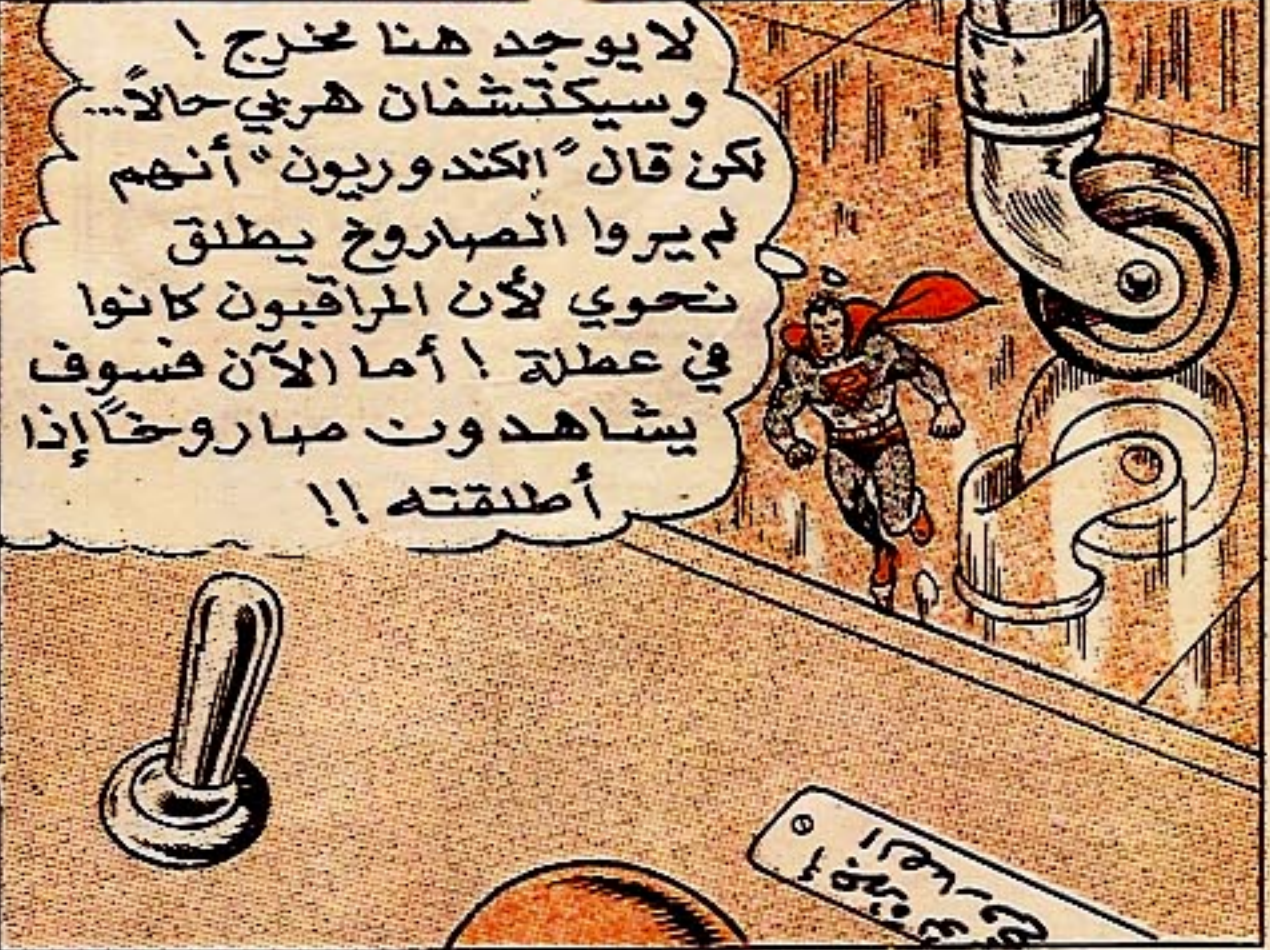 لا يوجد هنا مخرج !
وسيكتشفان هربي حالاً...
لكن قال "الكندوريون" أنهم
لم يروا الصاروخ يطلق
نحوي لأن المراقبون كانوا
في عطلة ! أما الآن فسوف
يشاهدون صاروخاً إذا
أطلقته !!